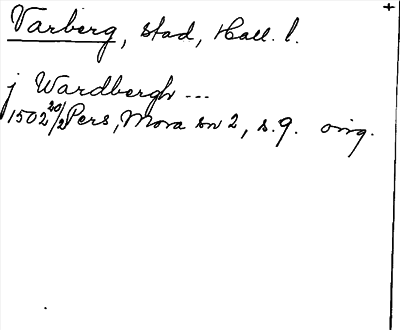 Varberg, stad, Hall. l.
j Wardbergh ...
1502 20/2 Pers, Mora sn 2, s. 9. orig.